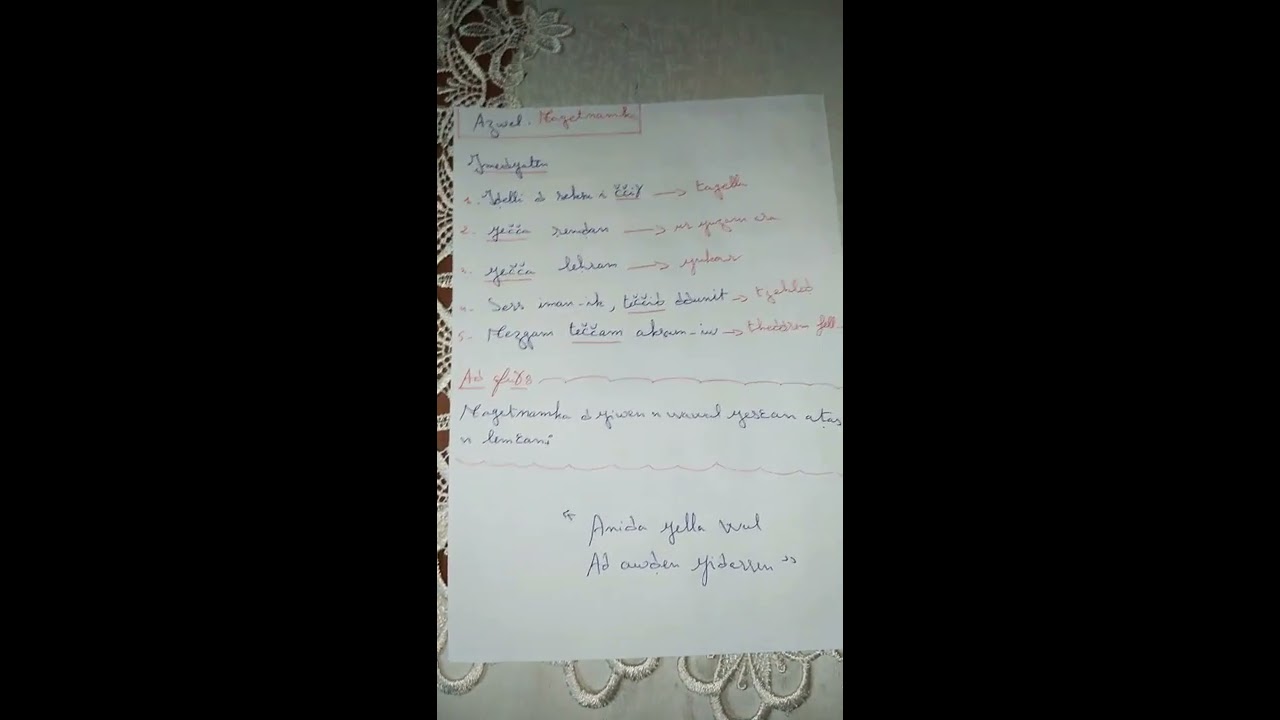 Azwel. Magetnamka
Imedyaten
1. Iḍelli d seksu i ččiɣ → tagella
2. yečča remḍan → ur yuẓam ara
3. yečča leḥram → yuker
4. Sers iman-ik, teččiḍ ddunit → tjehleḍ
5. Mezgam teččam aksum-iw → theddrem fell-
Ad gfiɣ:
Magetnamka d yiwen n wawal yesɛan aṭas
n lemɛani
" Anida yella wul
Ad awḍen yiḍarren "